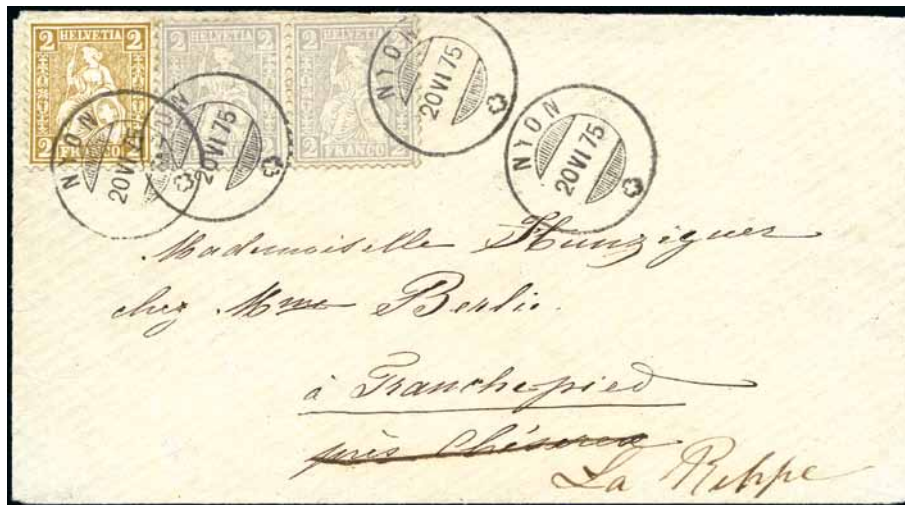 2 HELVETIA 2 2 HELVETIA 2 2 HELVETIA 2
2 FRANCO 2 FRANCO 2 2 FRANCO 2
NYON 20 VI 75
NYON 20 VI 75
NYON 20 VI 75
NYON 20 VI 75
Mademoiselle Hunziguer
chez Mme Berlie.
à Tranchepied
près Chéserex
La Rippe